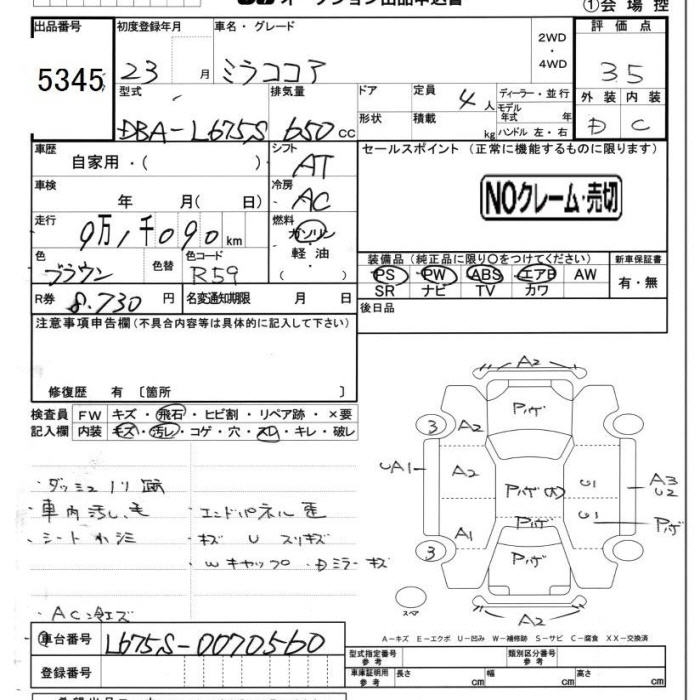 オークション出品申込書 ①会場控
出品番号 初度登録年月 車名・グレード 2WD・4WD 評価点
5345 23 月 ミラココア 35
型式 排気量 ドア 定員 4人 ディーラー・並行 外装 内装
DBA-L675S 650cc 形状 積載 kg モデル年式 年 ハンドル 左・右 D C
車歴 シフト セールスポイント(正常に機能するものに限ります)
自家用・( ) AT
車検 冷房 NOクレーム・売切
年 月( 日) AC
走行 燃料
9万1千090km ガソリン・軽油・( )
色 色替 色コード 装備品(純正品に限り○をつけてください) 新車保証書
ブラウン R59 PS PW ABS エアB AW 有・無
SR ナビ TV カワ
R券 8.730円 名変通知期限 月 日 後日品
注意事項申告欄(不具合内容等は具体的に記入して下さい)
修復歴 有〔箇所 〕
検査員 FW キズ・飛石・ヒビ割・リペア跡・×要
記入欄 内装 キズ・汚レ・コゲ・穴・スレ・キレ・破レ
・ダッシュノリ跡
・車内汚レ ・エンドパネル歪
・シート ・キズ U スリキズ
・Wキャップ ・Dミラーキズ
・AC
A2
Pハゲ
3 A2
UA1 A2 Pハゲ U1 A3
U2
A1 Pハゲ U1 Pハゲ
3 Pハゲ
スペア A2
A-キズ E-エクボ U-凹み W-補修跡 S-サビ C-腐食 XX-交換済
車台番号 L675S-0070560
登録番号
型式指定番号 参考 類別区分番号 参考
車庫証明用 参考 長さ cm 幅 cm 高さ cm